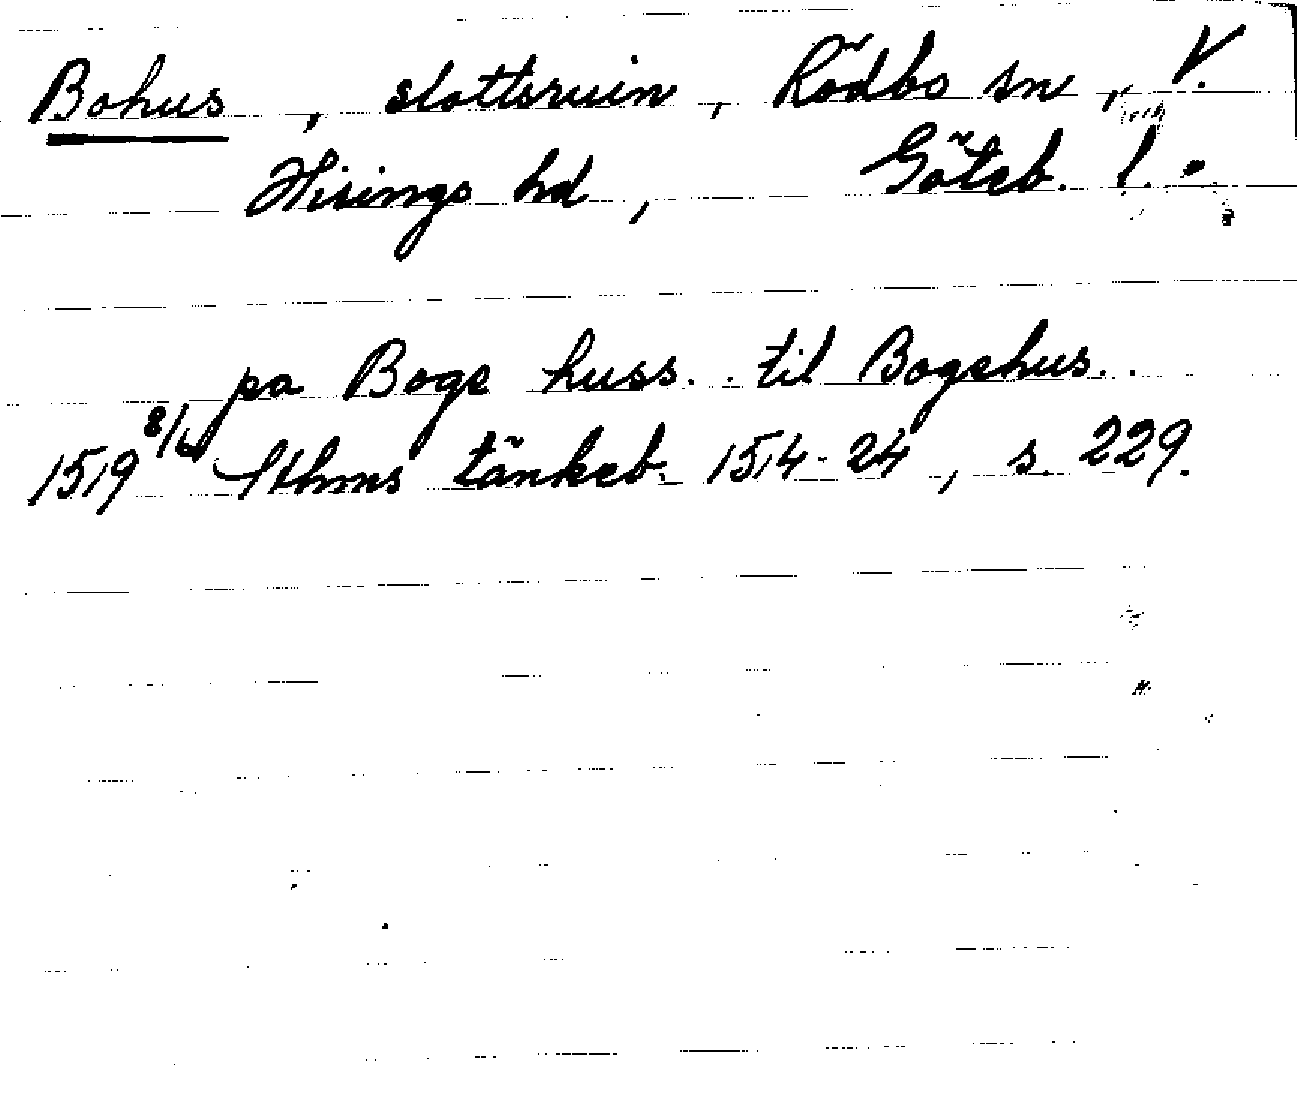 Bohus, slottsruin, Rödbo sn, V.
Hisings hd, Göteb. l.
pa Bogs huss.. til Bogshus..
1519 8/6 Sthms tänkeb. 1514-24, s. 229.